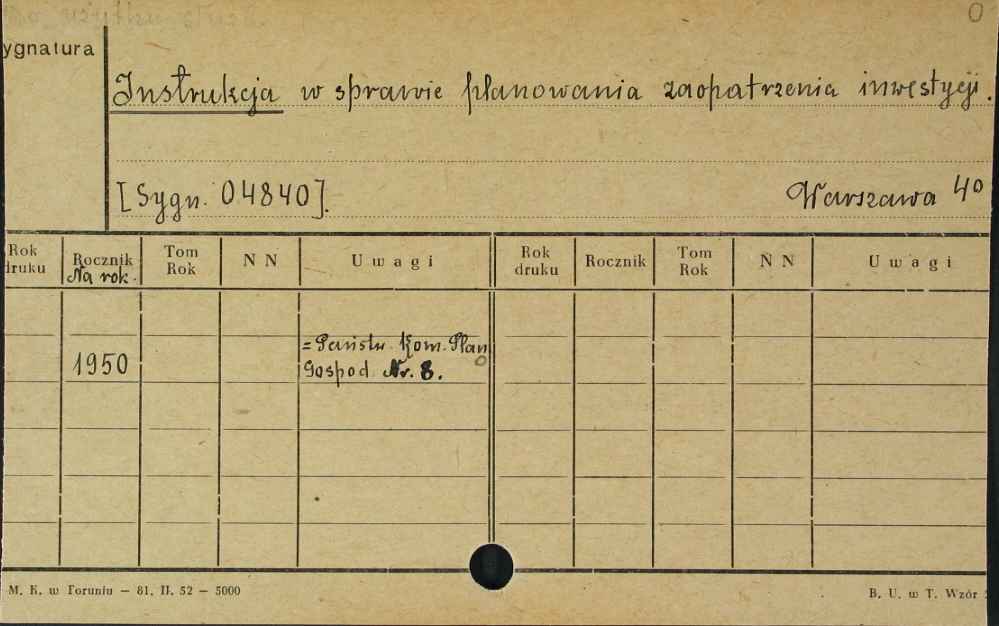 ygnatura
Instrukcja w sprawie planowania zaopatrzenia inwestycji.
[Sygn. 04840].
Warszawa 4°
Rok druku
Rocznik
Na rok.
Tom Rok
N N
Uwagi
Rok druku
Rocznik
Tom Rok
N N
Uwagi
1950
= Państw. Kom. Plan
Gospod. Nr. 8.
M. K. w Toruniu — 81. II. 52 — 5000
B. U. w T. Wzór